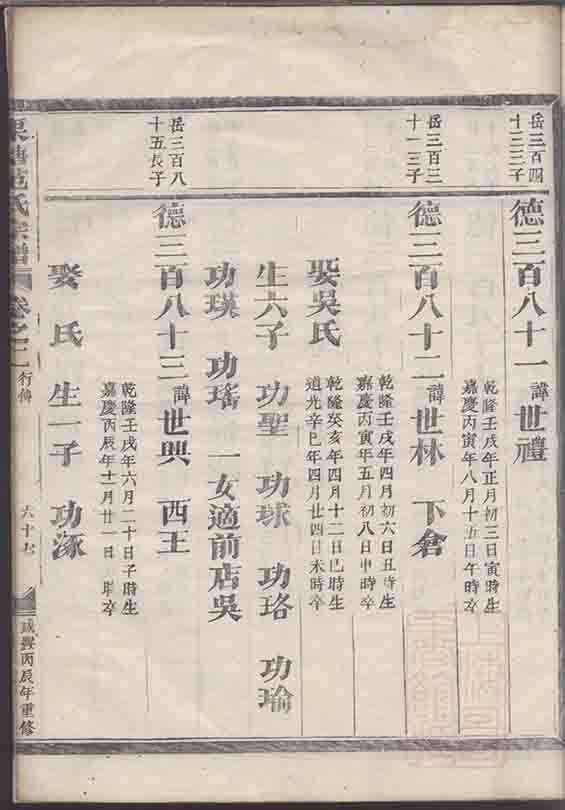 岳三百四
十三三子
德三百八十一 諱世禮
乾隆壬戌年正月初三日寅時生
嘉慶丙寅年八月十五日午時卒
岳三百三
十一三子
德三百八十二 諱世林 下倉
乾隆壬戌年四月初六日丑時生
嘉慶丙寅年五月初八日申時卒
娶吳氏
乾隆癸亥年四月十二日巳時生
道光辛巳年四月廿四日未時卒
生六子 功聖 功球 功珞 功瑜
功瑛 功瑤 一女適前店吳
岳三百八
十五長子
德三百八十三 諱世興 西王
乾隆壬戌年六月二十日子時生
嘉慶丙辰年十一月廿一日 時卒
娶 氏 生一子 功涿
塘范氏宗譜 卷之二 行傳 六十七 咸豐丙辰年重修